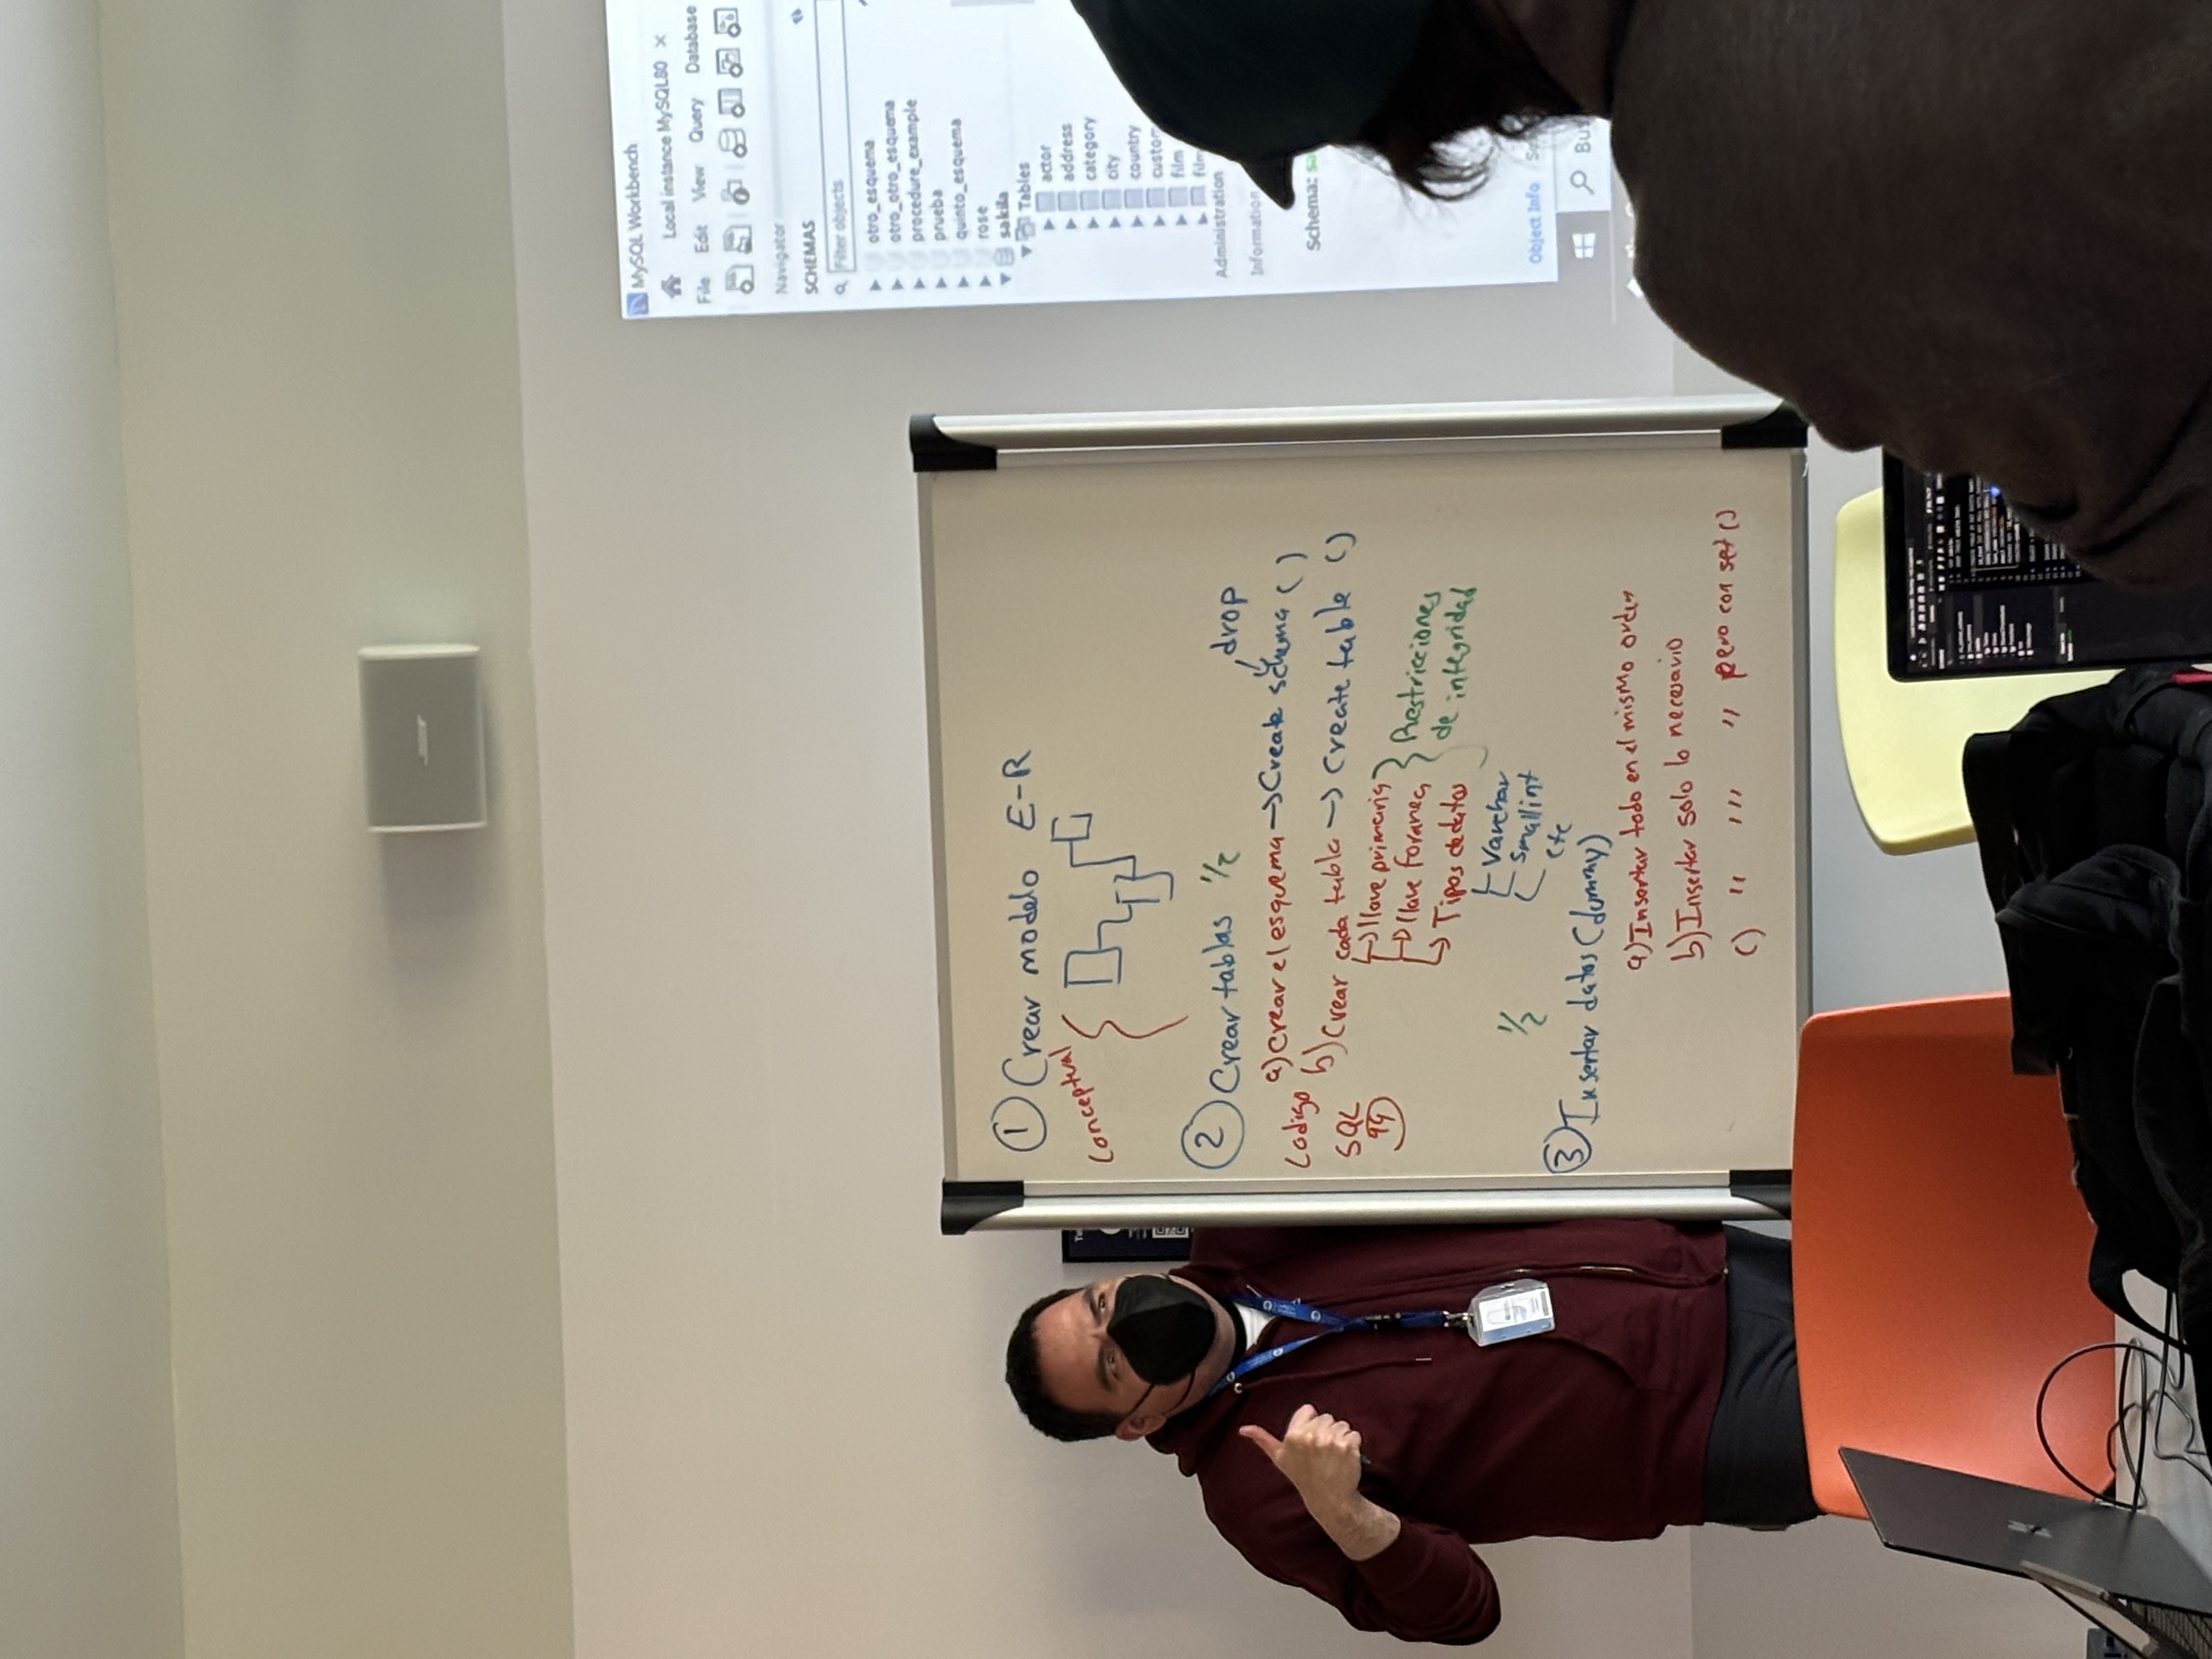 ① Crear modelo E-R
Conceptual
② Crear tablas 1/2
drop
a) Crear el esquema → Create schema ( )
Codigo
SQL
b) Crear cada tabla → Create table ( )
→ llave primaria
→ llave foranea
→ Tipos de datos
Restricciones
de integridad
Varchar
Smallint
etc
1/2
③ Insertar datos (dummy)
a) Insertar todo en el mismo orden
b) Insertar solo lo necesario
c) " " " pero con set ( )
MySQL Workbench
Local instance MySQL80 ×
File Edit View Query Database
Navigator
SCHEMAS
Filter objects
otro_esquema
otro_otro_esquema
procedure_example
prueba
quinto_esquema
rose
sakila
Tables
actor
address
category
city
country
custom
film
film
Administration
Information
Schema: sa
Object Info